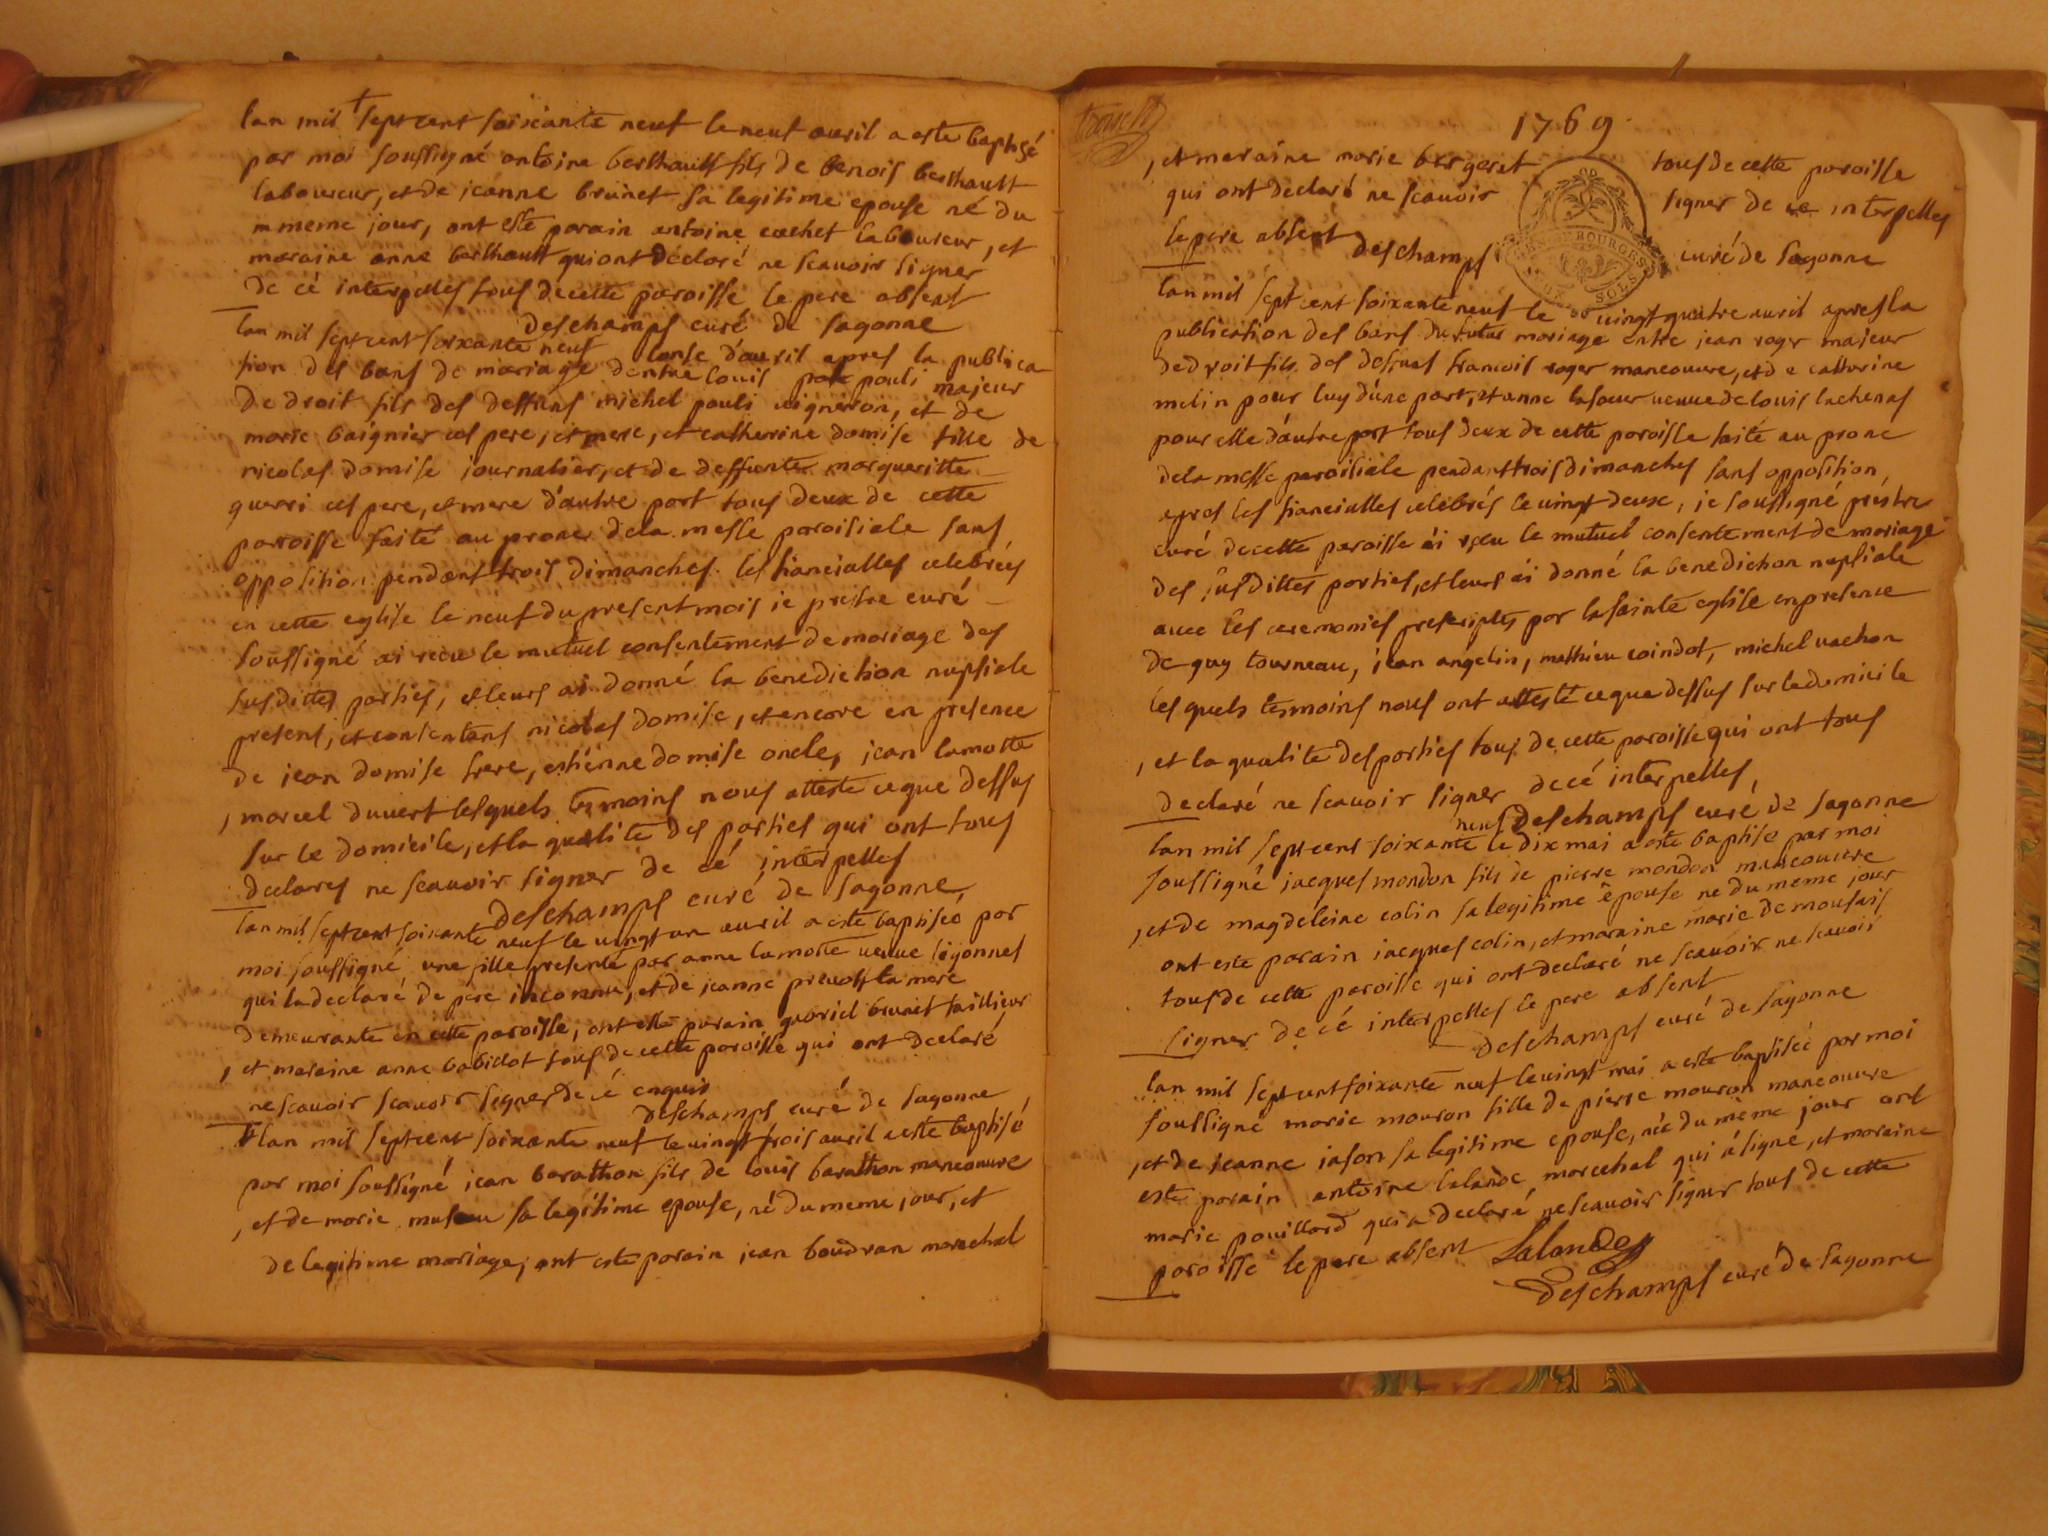 lan mil sept cent soixante neuf le neuf auril a esté baptisé
par moi soussigné antoine berthault fils de benois berthault
laboureur, et de jeanne brunet sa legitime epouse né du
meme jour, ont esté parain antoine cachet laboureur, et
maraine anne berthault qui ont déclaré ne scauoir signer
de cé interpelles tous de cette paroisse le pere absent
deschamps curé de sagonne
lan mil sept cent soixante neuf lonse d'auril apres la publica
tion des bans de mariage dentre louis pauli majeur
de droit fils des deffuns michel pauli uigneron, et de
marie baignier ces pere, et mere, et catherine domise fille de
nicolas domise journalier, et de deffunte margueritte
guerri ces pere, et mere d'autre part tous deux de cette
paroisse faite au prone dela messe paroisiale sans
opposition pendant trois dimanches. les fiancialles celebrées
en cette eglise le neuf du present mois je prestre curé
soussigné ai recu le mutuel consentement de mariage des
susdittes parties, et leurs ai donné la benediction nupsiale
presens, et consentans nicolas domise, et encore en presence
de jean domise frere, estienne domise oncle, jean lamotte
, marcel duuert lesquels tesmoins nous atteste ce que dessus
sur le domicile, et la qualité des parties qui ont tous
declares ne scauoir signer de cé interpelles
deschamps curé de sagonne
lan mil sept cent soixante neuf le uingt un auril a esté baptiseé par
moi soussigné une fille presenté par anne lamotte ueuue
qui la declaré de pere inconnu, et de jeanne preuost la mere
demeurante en cette paroisse, ont esté parain gabriel brunet taillieur
, et maraine anne babidot tous de cette paroisse qui ont declaré
ne scauoir scauoir signer de cé enquis
deschamps curé de sagonne
lan mil sept cent soixante neuf le uingt trois auril a esté baptisé
par moi soussigné jean barathon fils de louis barathon maneouure
, et de marie museau sa legitime epouse, né du meme jour, et
de legitime mariage, ont esté parain jean boudran marechal
1769
, et maraine marie bergerat tous de cette paroisse
qui ont déclaré ne scauoir signer de ce interpelles
le pere absent deschamps curé de sagonne
BOURGES
SOLS
lan mil sept cent soixante neuf le uingt quatre auril apres la
publication des bans du futur mariage entre jean roger majeur
de droit fils des deffuns francois roger maneouure, et de catherine
melin pour luy d'une part, et anne lasoeur ueuue de louis lachenas
pour elle d'autre part tous deux de cette paroisse faite au prone
dela messe paroisiale pendant trois dimanches sans opposition,
apres les fiancialles celebrés le uingt deux, je soussigné prestre
curé de cette paroisse ai recu le mutuel consentement de mariage
des susdittes parties, et leurs ai donné la benediction nupsiale
auec les ceremonies prescriptes par la sainte eglise en presence
de guy tourneau, jean angelin, mathieu coindot, michel uachon
les quels tesmoins nous ont attesté ce que dessus sur le domicile
, et la qualité des parties tous de cette paroisse qui ont tous
declaré ne scauoir signer de cé interpelles,
deschamps curé de sagonne
neuf
lan mil sept cent soixante le dix mai a esté baptisé par moi
soussigné jacques mondon fils de pierre mondon maneouure
, et de magdeleine colin sa legitime epouse né du meme jour
ont esté parain jacques colin, et maraine marie de mousais
tous de cette paroisse qui ont declaré ne scauoir ne scauoir
signer de cé interpelles le pere absent
deschamps curé de sagonne
lan mil sept cent soixante neuf le uingt mai a esté baptiseé par moi
soussigné marie mouron fille de pierre mouron maneouure
, et de jeanne jason sa legitime epouse, née du mème jour ont
esté parain antoine lalande marcehal qui a signé, et maraine
marie pouillard qui a declaré ne scauoir signer tous de cette
paroisse le pere absent Lalande
deschamps curé de sagonne